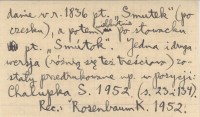 dane w r. 1836 pt. „Smutek" (po
czesku), a potem po słowacku
pt. „Smútok". Jedna i druga
wersja (różnią się też treściowo) zo-
stały przedrukowane np. w pozycji:
Chalupka S. 1952 (s. 23-139).
Rec.: Rosenbaum K. 1952.